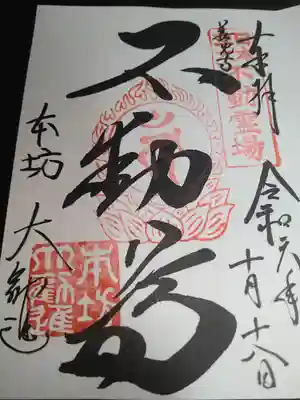 奉拝
善光寺
不動霊場
令和六年十月十八日
不動尊
本坊 大勧進
本坊
大勧進